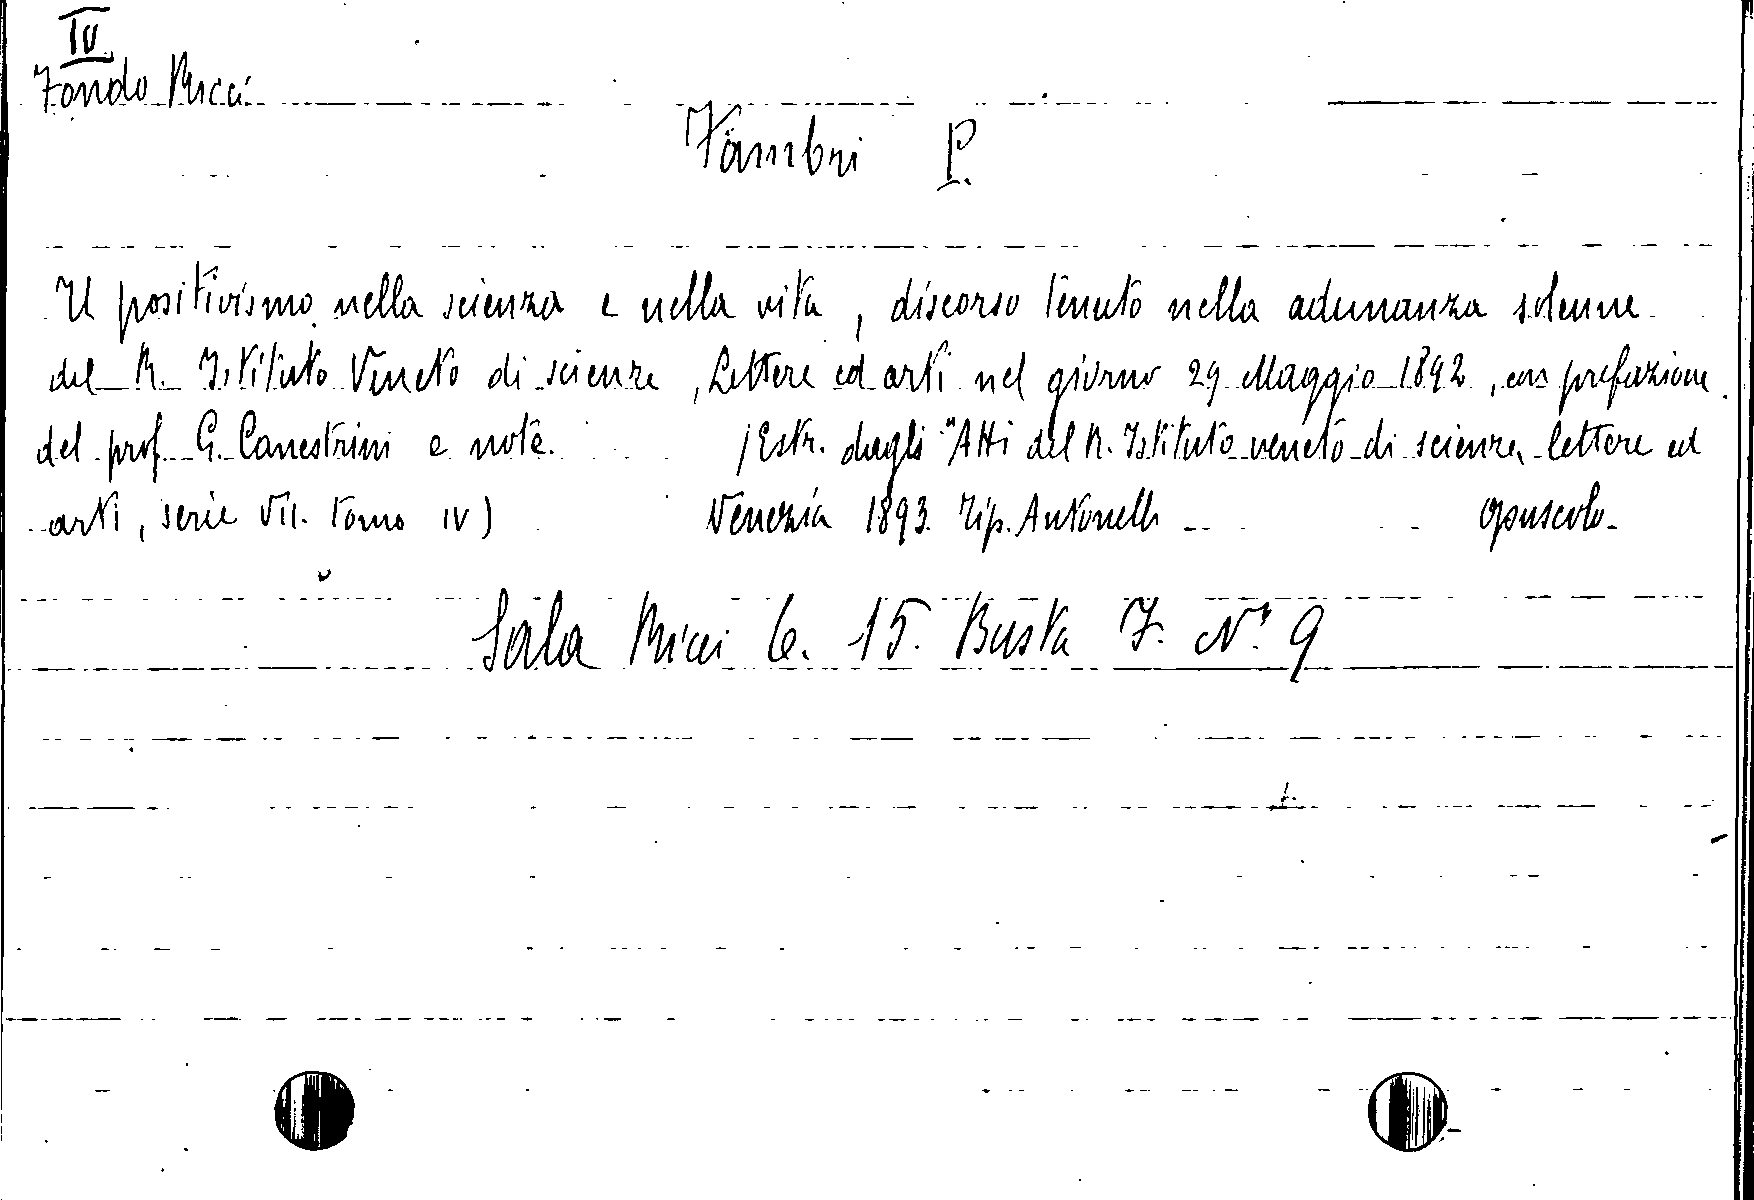 IV
Fondo Ricci
Fambri P.
Il positivismo nella scienza e nella vita, discorso tenuto nella adunanza solenne
del R. Istituto Veneto di scienze, Lettere ed arti nel giorno 29 Maggio 1892, con prefazione
del prof. G. Canestrini e note. (Estr. dagli "Atti del R. Istituto veneto di scienze, lettere ed
arti, serie VII. tomo IV) Venezia 1893. Tip. Antonelli - opuscolo-
Sala Ricci 6. 15. Busta F. N.° 9